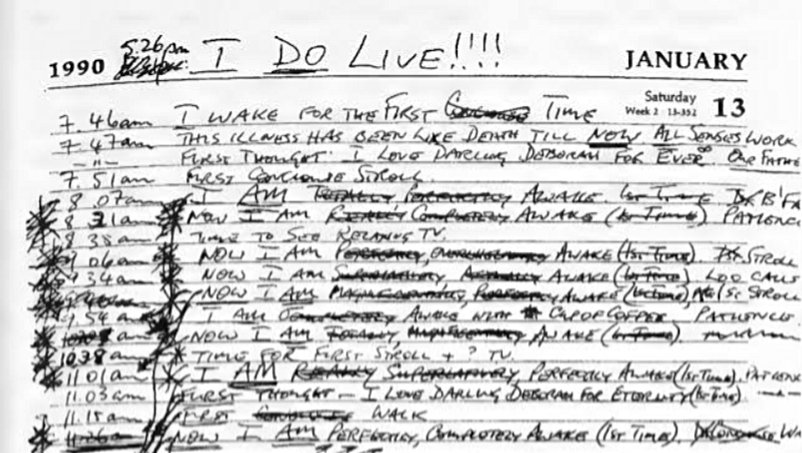 1990 5.26pm I DO LIVE!!!! JANUARY
Saturday
Week 2 · 13-352 13
7.46am I WAKE FOR THE FIRST TIME
7.47am THIS ILLNESS HAS BEEN LIKE DEATH TILL NOW ALL SENSES WORK
-"- FIRST THOUGHT: I LOVE DARLING DEBORAH FOR EVER OUR FATHE
7.51am FIRST CONSCIOUS STROLL.
8.07am I AM TOTALLY PERFECTLY AWAKE. 1ST TIME
8.31am NOW I AM REALLY COMPLETELY AWAKE (1ST TIME) PATIENC
8.38am TIME TO SEE RELAXING TV.
9.06am NOW I AM PERFECTLY, OVERWHELMINGLY AWAKE (1ST TIME). 1ST STROLL
9.34am NOW I AM SUPERLATIVELY, ACTUALLY AWAKE (1ST TIME) LOO CALLS
NOW I AM PERFECTLY AWAKE (1ST TIME) 1ST STROLL
9.54am I AM COMPLETELY AWAKE WITH CUP OF COFFEE PATIENCE.
NOW I AM TOTALLY, AWAKE (1ST TIME).
10.38am TIME FOR FIRST STROLL + ? TV.
11.01am I AM REALLY SUPERLATIVELY PERFECTLY AWAKE (1ST TIME). PATIENC
11.03am FIRST THOUGHT - I LOVE DARLING DEBORAH FOR ETERNITY (1ST TIME)
11.15am FIRST CONSCIOUS WALK
11.26am NOW I AM PERFECTLY, COMPLETELY AWAKE (1ST TIME). WA